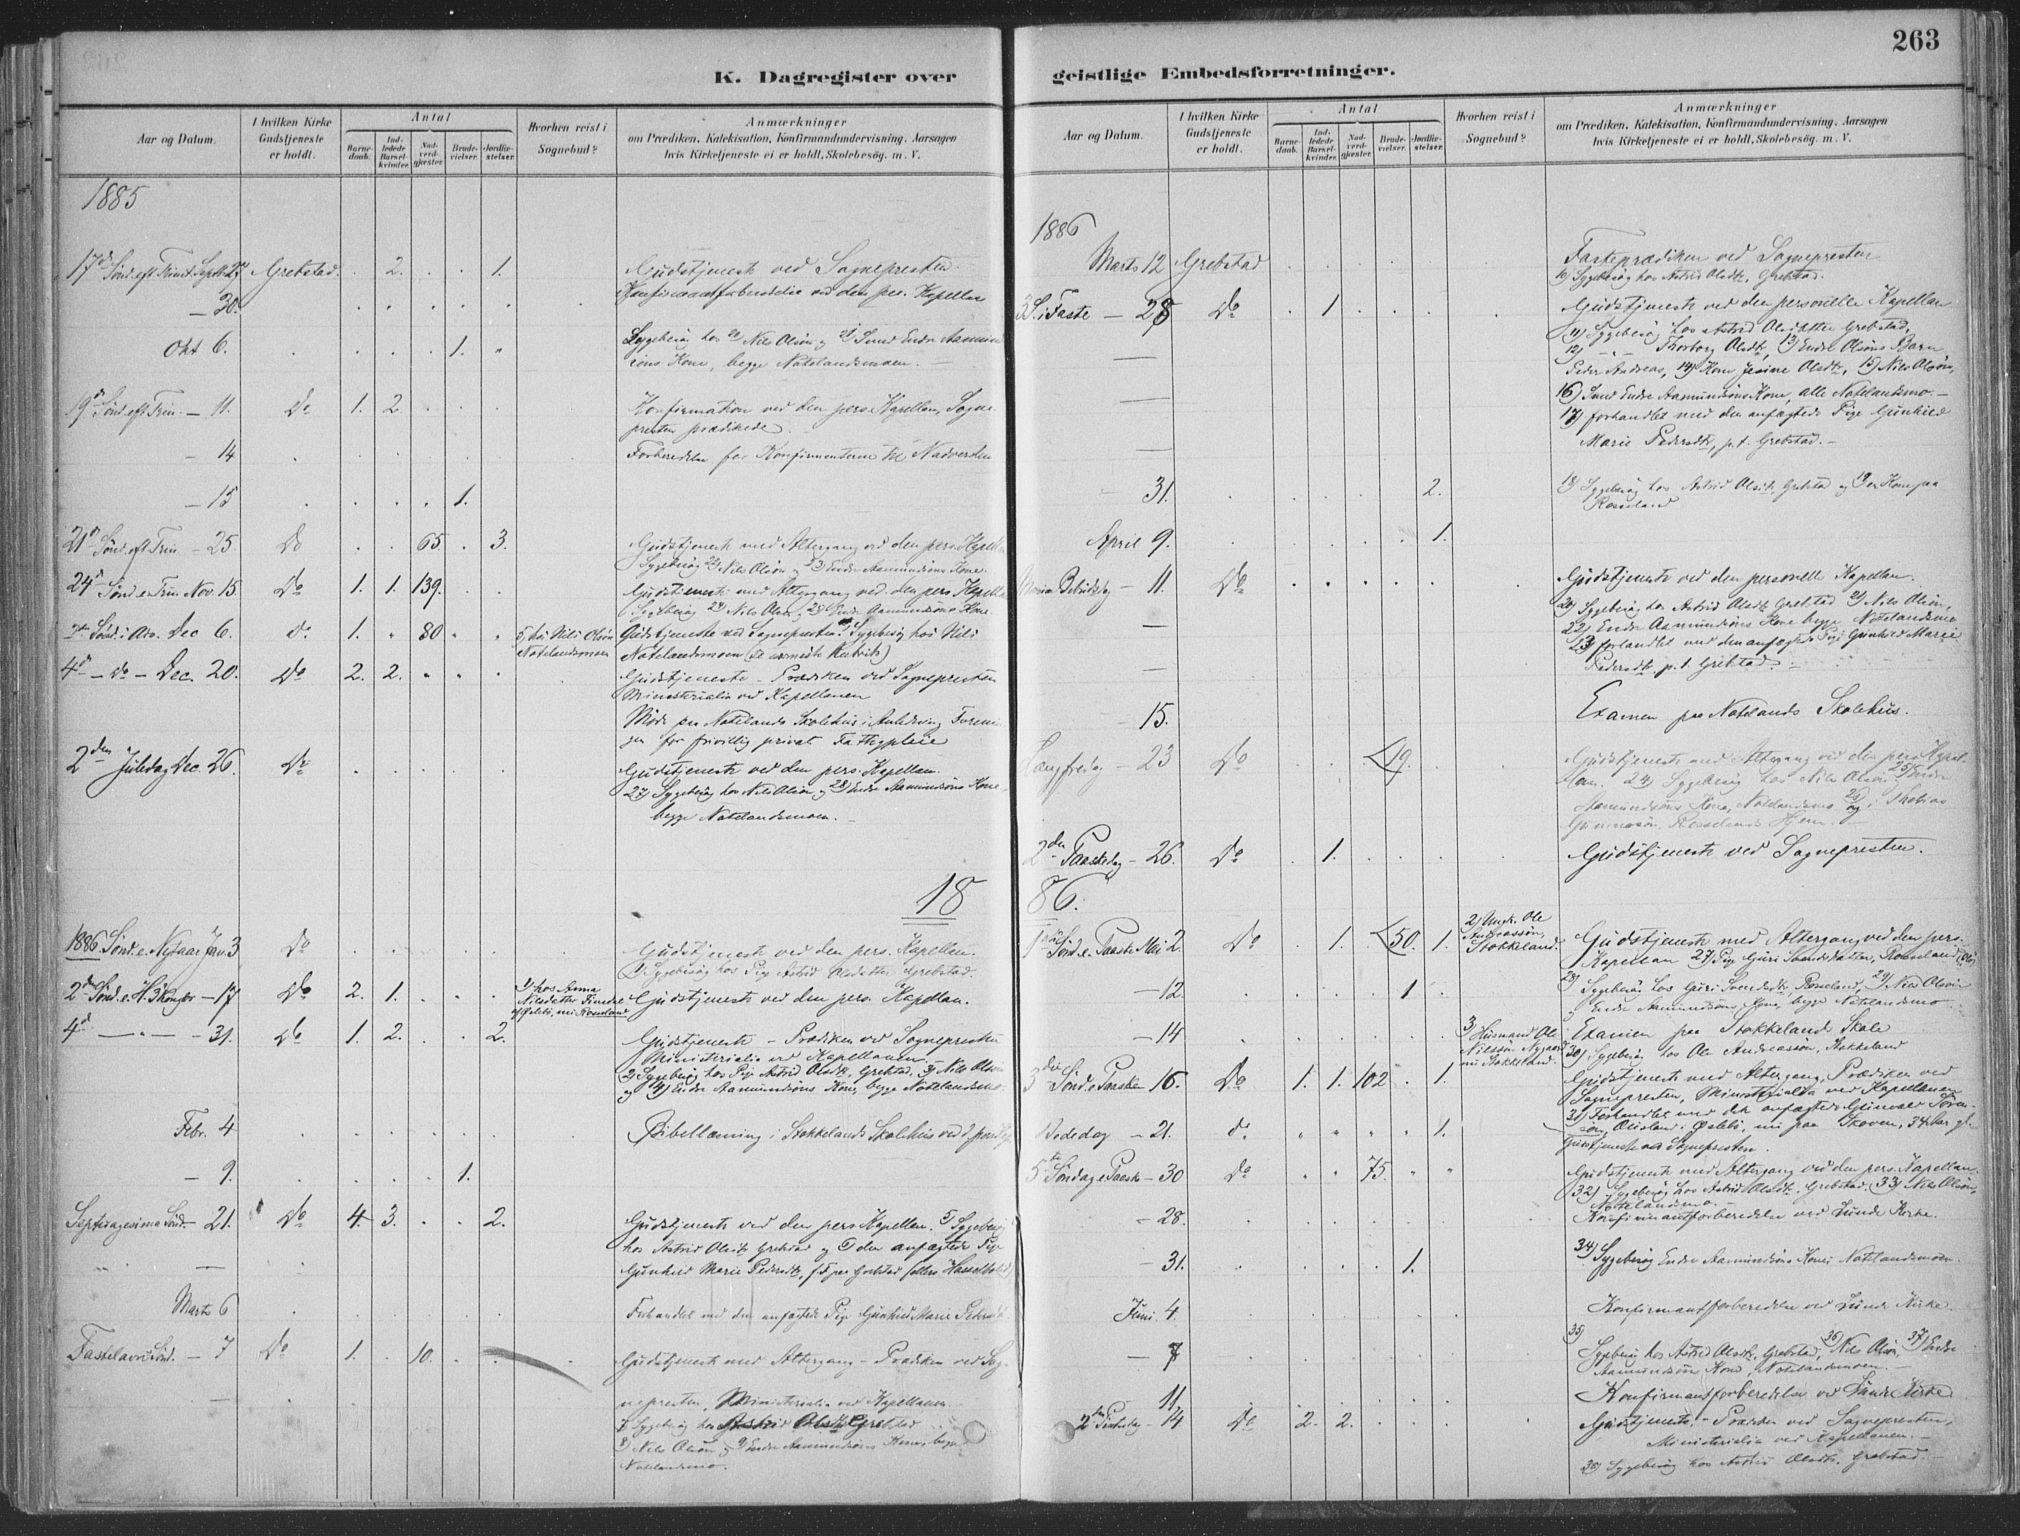 263
K. Dagregister over geistlige Embedsforretninger.
Aar og Datum.
I hvilken Kirke Gudstjeneste er holdt.
Antal
Barnedaab.
Indledede Barselkvinder.
Nadverdgjester.
Brudevielser.
Jordfæstelser.
Hvorhen reist i Sognebud?
Anmærkninger
om Prædiken, Katekisation, Konfirmandundervisning, Aarsagen
hvis Kirketjeneste ei er holdt, Skolebesøg. m. V.
1885
17de Sönd. eft. Trinit. Septbr 27 Grebstad. 2. 1. Gudstjeneste ved Sognepresten.
— 30. Konfirmantforberedelse ved den per. Kapellan
Okt 6. 1. Sygebesøg hos Nils Olsön og Smed Endre Aamunds
söns Kone, begge Natelandsmoen.
19de Sönd. eft. Trin. — 11. Do 1. 2. Konfirmation ved den pers. Kapellan, Sogne-
presten prædikede.
— 14 Forberedelse for Konfirmenterne til Nadverden
— 15 1.
21de Sönd. eft. Trin. — 25. Do 65. 3. Gudstjeneste med Altergang ved den pers. Kapellan
Sygebesøg Nils Olsön og Endre Aamundsöns Kone.
24de Sönd. e. Trin. Nov. 15. Do 1. 1. 139. Gudstjeneste med Altergang ved den pers. Kapellan
Sygebesøg Nils Olsön, Endre Aamundsöns Kone
2den Sönd. i Adv. Dec 6. do 1. 80 hos Nils Olsön Natelandsmoen Gudstjeneste ved Sognepresten. Sygebesøg hos Nils
Natelandsmoen
4de — do — Dec. 20. Do 2. 2. Gudstjeneste — Prædiken ved Sognepresten
Ministerialia ved Kapellanen
Møde paa Natelands Skolehus i Anledning Forenin-
gen for frivillig privat Fattigpleie
2den Juledag Dec. 26. Do Gudstjeneste ved den pers. Kapellan.
27) Sygebesøg hos Nils Olsön og 28) Endre Aamundsöns Kone
begge Natelandsmoen.
18
1886 Sönd. e. Nytaar Jan. 3 Do Gudstjeneste ved den pers. Kapellan.
1) Sygebesøg hos Pige Astrid Olsdatter Grebstad.
2den Sönd. e. H. 3 Konger — 17 Do 2. 1. 1) hos Anna Nilsdatter Roseland Gudstjeneste ved den pers. Kapellan.
4de — " — 31. Do 1. 2. 2. Gudstjeneste — Prædiken ved Sognepresten
Ministerialia ved Kapellanen.
2) Sygebesøg hos Pige Astrid Olsdtr, Grebstad, 3) Nils Olsön
og 4) Endre Aamundsöns Kone, begge Natelandsmo.
Febr. 4 Bibellæsning i Stokkelands Skolehus ved
— 9. 1.
Septuagesima Sönd. — 21. Do 4. 3. 2. Gudstjeneste ved den pers. Kapellan. 5) Sygebesøg
hos Astrid Olsdtr Grebstad og den anfægtede Pige
Gunhild Marie Pedersdtr,
Marts 6 Forhandlet med den anfægtede Pige Gunhild Marie Pedersdtr
Fastelavns Sönd. — 7 Do 1. 10. Gudstjeneste med Altergang — Prædiken ved Sog-
nepresten, Ministerialia ved Kapellanen.
Sygebesøg hos Astrid Olsdtr Grebstad
8) Nils Olsön og 9) Endre Aamundsöns Kone, begge
Natelandsmo.
Aar og Datum.
I hvilken Kirke Gudstjeneste er holdt.
Antal
Barnedaab.
Indledede Barselkvinder.
Nadverdgjester.
Brudevielser.
Jordfæstelser.
Hvorhen reist i Sognebud?
Anmærkninger
om Prædiken, Katekisation, Konfirmandundervisning, Aarsagen
hvis Kirketjeneste ei er holdt, Skolebesøg. m. V.
1886
Marts 12 Grebstad Fasteprædiken ved Sognepresten
10) Sygebesøg hos Astrid Olsdtr, Grebstad.
3 S. i Faste — 28 Do 1 Gudstjeneste ved den personelle Kapellan
11) Sygebesøg hos Astrid Olsdatter Grebstad,
12) — " — Thorborg Olsdtr, 13) Endre Olsöns Barn
Peder Andreas, 14) Kone Jesine Olsdtr, 15) Nils Olsön,
16) Smed Endre Aamundsöns Kone, alle Natelandsmo. —
17) forhandlet med den anfægtede Pige Gunhild
Marie Pedersdtr, p. t. Grebstad. —
31. 2. 18) Sygebesøg hos Astrid Olsdtr Grebstad og 19) en Kone paa
Roseland
April 9. 1.
Maria Bebudelse — 11. Do Gudstjeneste ved den personelle Kapellan.
20) Sygebesøg hos Astrid Olsdtr Grebstad 21) Nils Olsön,
22) Endre Aamundsöns Kone begge Natelandsmo
23) forhandlet med den anfægtede Pige Gunhild Marie
Pedersdtr p. t. Grebstad.
— 15. Examen paa Natelands Skolehus.
Langfredag — 23 Do 19. Gudstjeneste med Altergang ved den pers. Kapel-
lan. 24) Sygebesøg hos Nils Olsön 25) Endre
Aamundsöns Kone, Natelandsmo 26) og i Thobias
Gunnarsön, Roselands Hjem.
2den Paaskedag — 26. Do 1. Gudstjeneste ved Sognepresten.
86.
1ste Sönd. e. Paaske Mai 2. Do 1. 50. 1. 2) Ungk. Ole Andreassön, Stokkeland. Gudstjeneste med Altergang ved den pers.
Kapellan 27) Pige Guri Svendsdatter, Roseland
— 12. 1 28) Sygebesøg hos Guri Svendsdtr, Roseland, 29) Nils Olsön
Endre Aamundsöns Kone, begge Natelandsmo
— 14 3 Husmand Ole Nilssön Nygaard Stokkeland. Examen paa Stokkelands Skole
30) Sygebesøg hos Ole Andreassön, Stokkeland
3die Sönd. e. Paaske 16. Do 1. 1. 102 1. Gudstjeneste med Altergang, Prædiken ved
Sognepresten, Ministerialia ved Kapellanen
31) Forhandlet med den anfægtede
Skoven, 34 Aar gl.
Bededag — 21. do 1. Gudstjeneste ved Sognepresten.
5te Søndag e. Paaske — 30 Do 75. Gudstjeneste med Altergang ved den pers. Kapellan
32) Sygebesøg hos Astrid Olsdtr. Grebstad. 33) Nils Olsön,
Natelandsmo.
— 28. Konfirmantforberedelse ved Lunde Kirke.
— 31. 1. 34) Sygebesøg Endre Aamundsöns Kone, Natelandsmoen.
Juni 4. Konfirmantforberedelse ved Lunde Kirke.
— 7 35) Sygebesøg hos Astrid Olsdtr, Grebstad, 36) Nils Olsön, 37) Endre
Aamundsöns Kone, Natelandsmoen. —
11 Konfirmantforberedelse ved Lunde Kirke
2den Pintsedag — 14 Do 2. 2. Gudstjeneste, — Prædiken ved Sognepresten,
Ministerialia ved Kapellanen. —
38) Sygebesøg hos Astrid Olsdtr, Grebstad. —